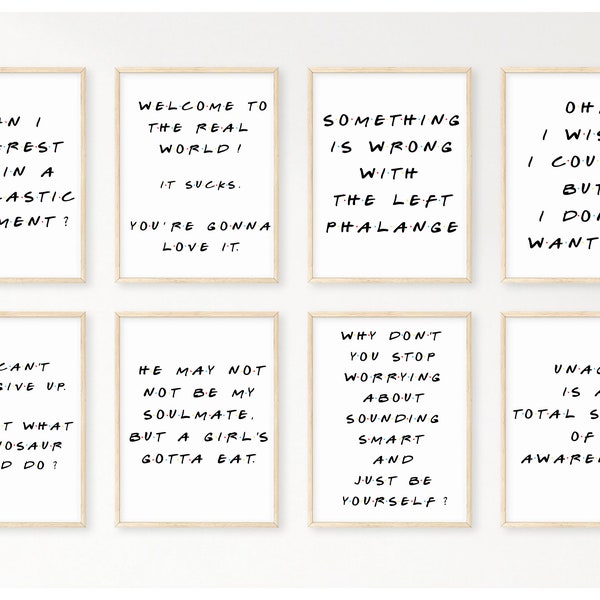 AN I
EREST
IN A
ASTIC
MENT?
WELCOME TO
THE REAL
WORLD!
IT SUCKS.
YOU'RE GONNA
LOVE IT.
SOMETHING
IS WRONG
WITH
THE LEFT
PHALANGE
OH,
I WIS
I COU
BUT
I DON
WANT
CAN'T
GIVE UP.
T WHAT
OSAUR
D DO?
HE MAY NOT
NOT BE MY
SOULMATE,
BUT A GIRL'S
GOTTA EAT.
WHY DON'T
YOU STOP
WORRYING
ABOUT
SOUNDING
SMART
AND
JUST BE
YOURSELF?
UNAG
IS A
TOTAL S
OF
AWARE